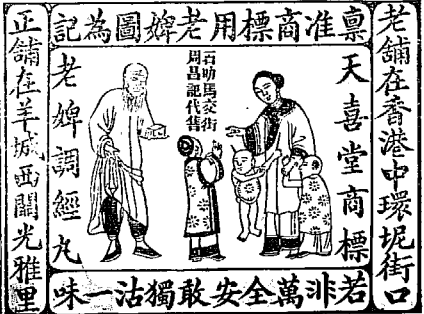 稟准商標用老婢圖為記
老舖在香港中環坭街口
天喜堂商標
石叻馬交街
周昌記代售
老婢調經丸
正舖在羊城西關光雅里
若非萬全安敢獨沽一味